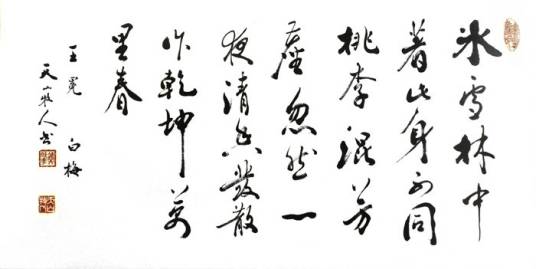 冰雪林中
著此身不同
桃李混芳
塵忽然一
夜清香發散
作乾坤萬
里春
王冕 白梅
天山人书